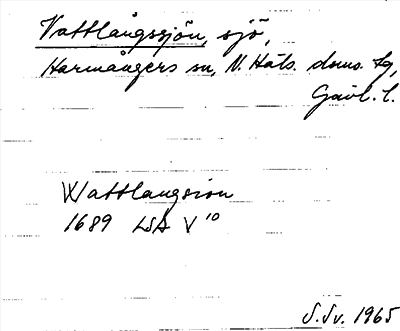 Vattlångssjön, sjö,
Harmångers sn, N. Häls. doms. tg,
Gävl. l.
Wattlangsion
1689 LSA V 10
S. Sv. 1965